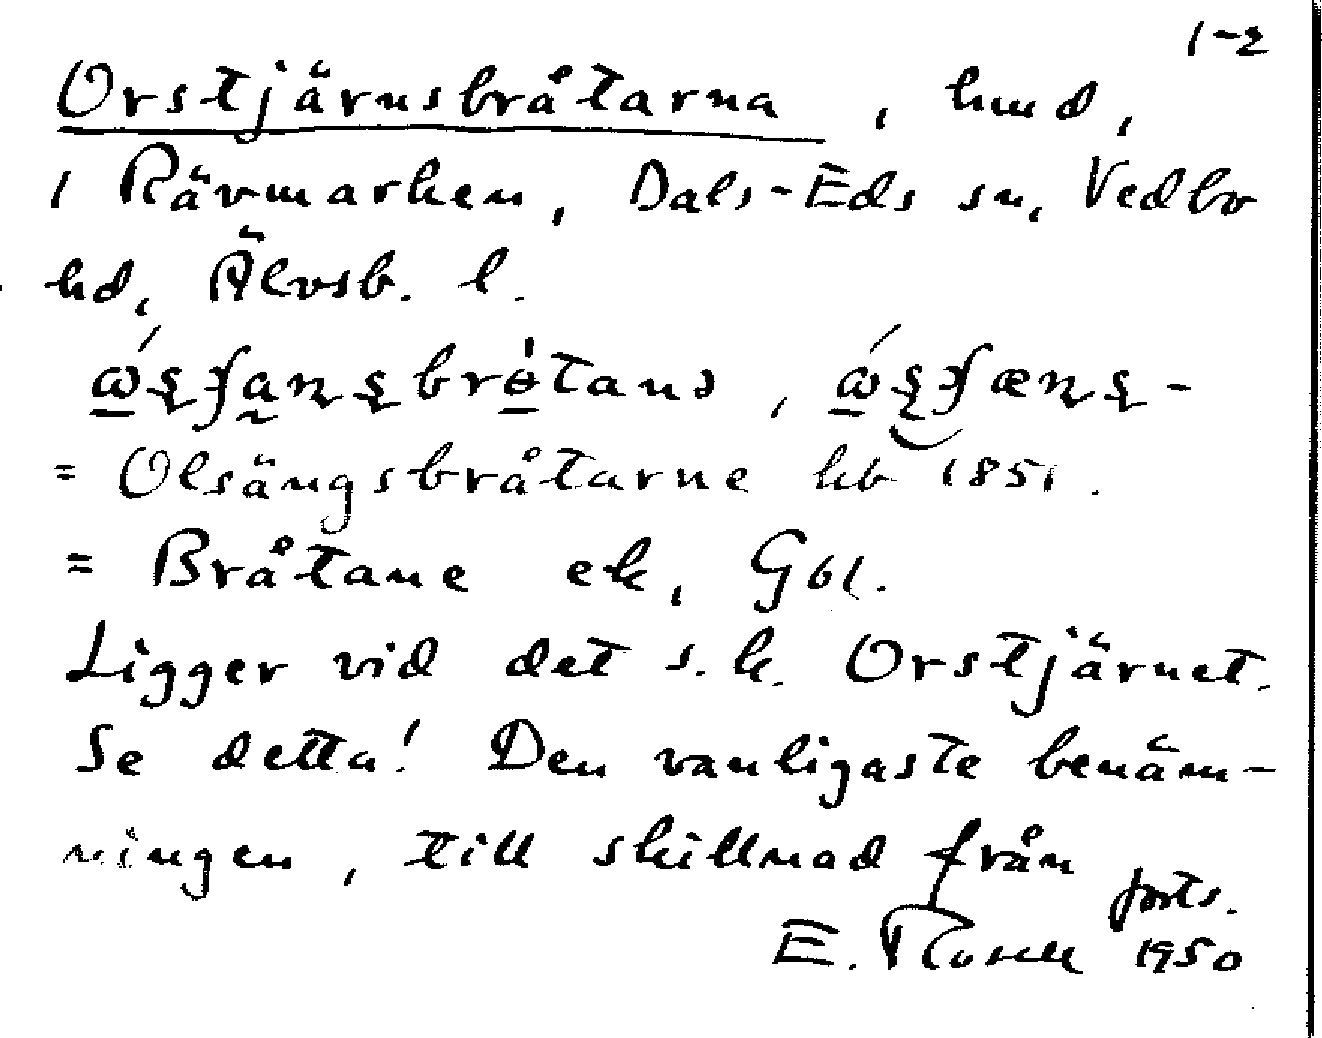 1-2
Orstjärnsbråtarna, hmd,
i Rävmarken, Dals-Eds sn, Vedbo
hd, Älvsb. l.
= Olsängsbråtarne hb 1851.
= Bråtane ek, Gbl.
Ligger vid det s.k. Orstjärnet.
Se detta! Den vanligaste benäm-
ningen, till skillnad från
forts.
E. Rosell 1950